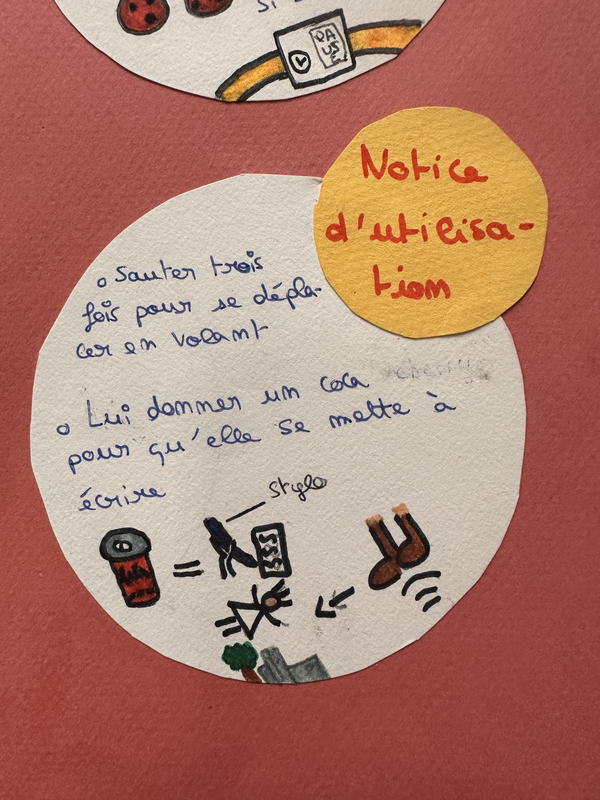 si
PAUSE
Notice
d'utilisa-
tion
o Sauter trois
fois pour se dépla-
cer en volant
o Lui donner un coca
pour qu'elle se mette à
écrire
stylo
=